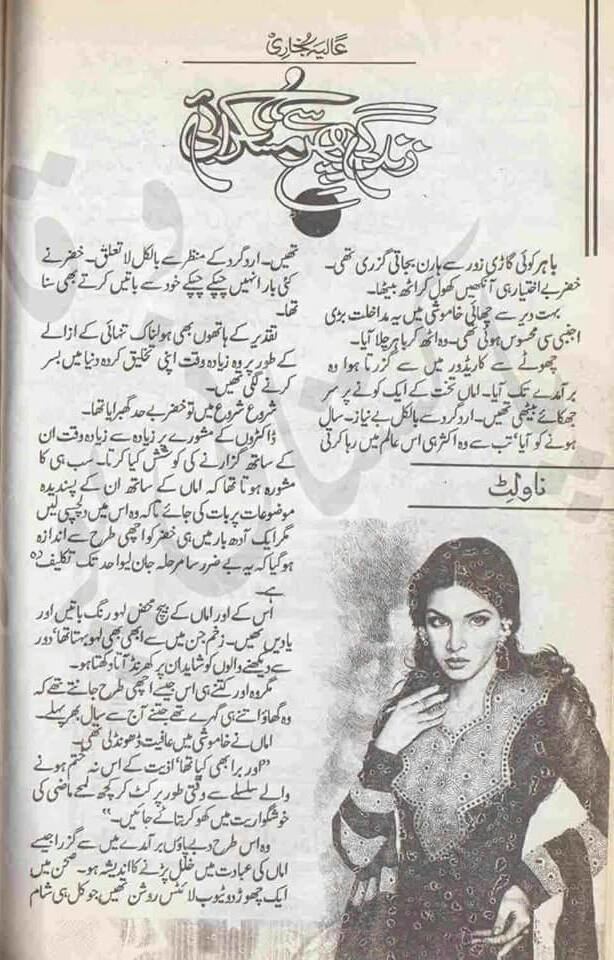 عالیہ بخاری
زندگی پھر سے مسکرائی
باہر کوئی گاڑی زور سے ہارن بجاتی گزری تھی۔
خضر بے اختیار ہی آنکھیں کھول کر اٹھ بیٹھا۔
بہت دیر سے چھائی خاموشی میں یہ مداخلت بڑی
اجنبی سی محسوس ہوئی تھی۔ وہ اٹھ کر باہر چلا آیا۔
چھوٹے سے کاریڈور میں سے گزرتا ہوا وہ
برآمدے تک آیا۔ اماں تخت کے ایک کونے پر سر
جھکائے بیٹھی تھیں۔ اردگرد سے بالکل بے نیاز۔ سال
ہونے کو آیا‘ تب سے وہ اکثر ہی اس عالم میں رہا کرتی
ناولٹ
تھیں۔ اردگرد کے منظر سے بالکل لاتعلق۔ خضر نے
کئی بار انہیں چپکے چپکے خود سے باتیں کرتے بھی سنا
تھا۔
تقدیر کے ہاتھوں بھی ہولناک تنہائی کے ازالے
کے طور پر وہ زیادہ وقت اپنی تخلیق کردہ دنیا میں بسر
کرنے لگی تھیں۔
شروع شروع میں تو خضر بے حد گھبرایا تھا۔
ڈاکٹروں کے مشورے پر زیادہ سے زیادہ وقت ان
کے ساتھ گزارنے کی کوشش کیا کرتا۔ سب ہی کا
مشورہ ہوتا تھا کہ اماں کے ساتھ ان کے پسندیدہ
موضوعات پر بات کی جائے تاکہ وہ اس میں دلچسپی لیں
مگر ایک آدھ بار میں ہی خضر کو اچھی طرح سے اندازہ
ہو گیا کہ یہ بے ضرر سا مرحلہ جان لیوا حد تک تکلیف دہ
ہے۔
اس کے اور اماں کے بیچ محض لہو رنگ باتیں اور
یادیں تھیں۔ زخم جن میں سے ابھی بھی لہو بہتا تھا‘ دور
سے دیکھنے والوں کو شاید ان پر کھرنڈ آتا دکھتا ہو۔
مگر وہ اور کتنے ہی اس جیسے اچھی طرح جانتے تھے کہ
وہ گھاؤ اتنے ہی گہرے تھے جتنے آج سے سال بھر پہلے۔
اماں نے خاموشی میں عافیت ڈھونڈ لی تھی۔
”اور برا بھی کیا تھا‘ اذیت کے اس نہ ختم ہونے
والے سلسلے سے وقتی طور پر کٹ کر کچھ لمحے ماضی کی
خوشگواریت میں کھو کر بتائے جائیں۔“
وہ اس طرح دبے پاؤں برآمدے میں سے گزرا جیسے
اماں کی عبادت میں خلل پڑنے کا اندیشہ ہو۔ صحن میں
ایک چھوڑ دو ٹیوب لائٹس روشن تھیں جو کل ہی شام